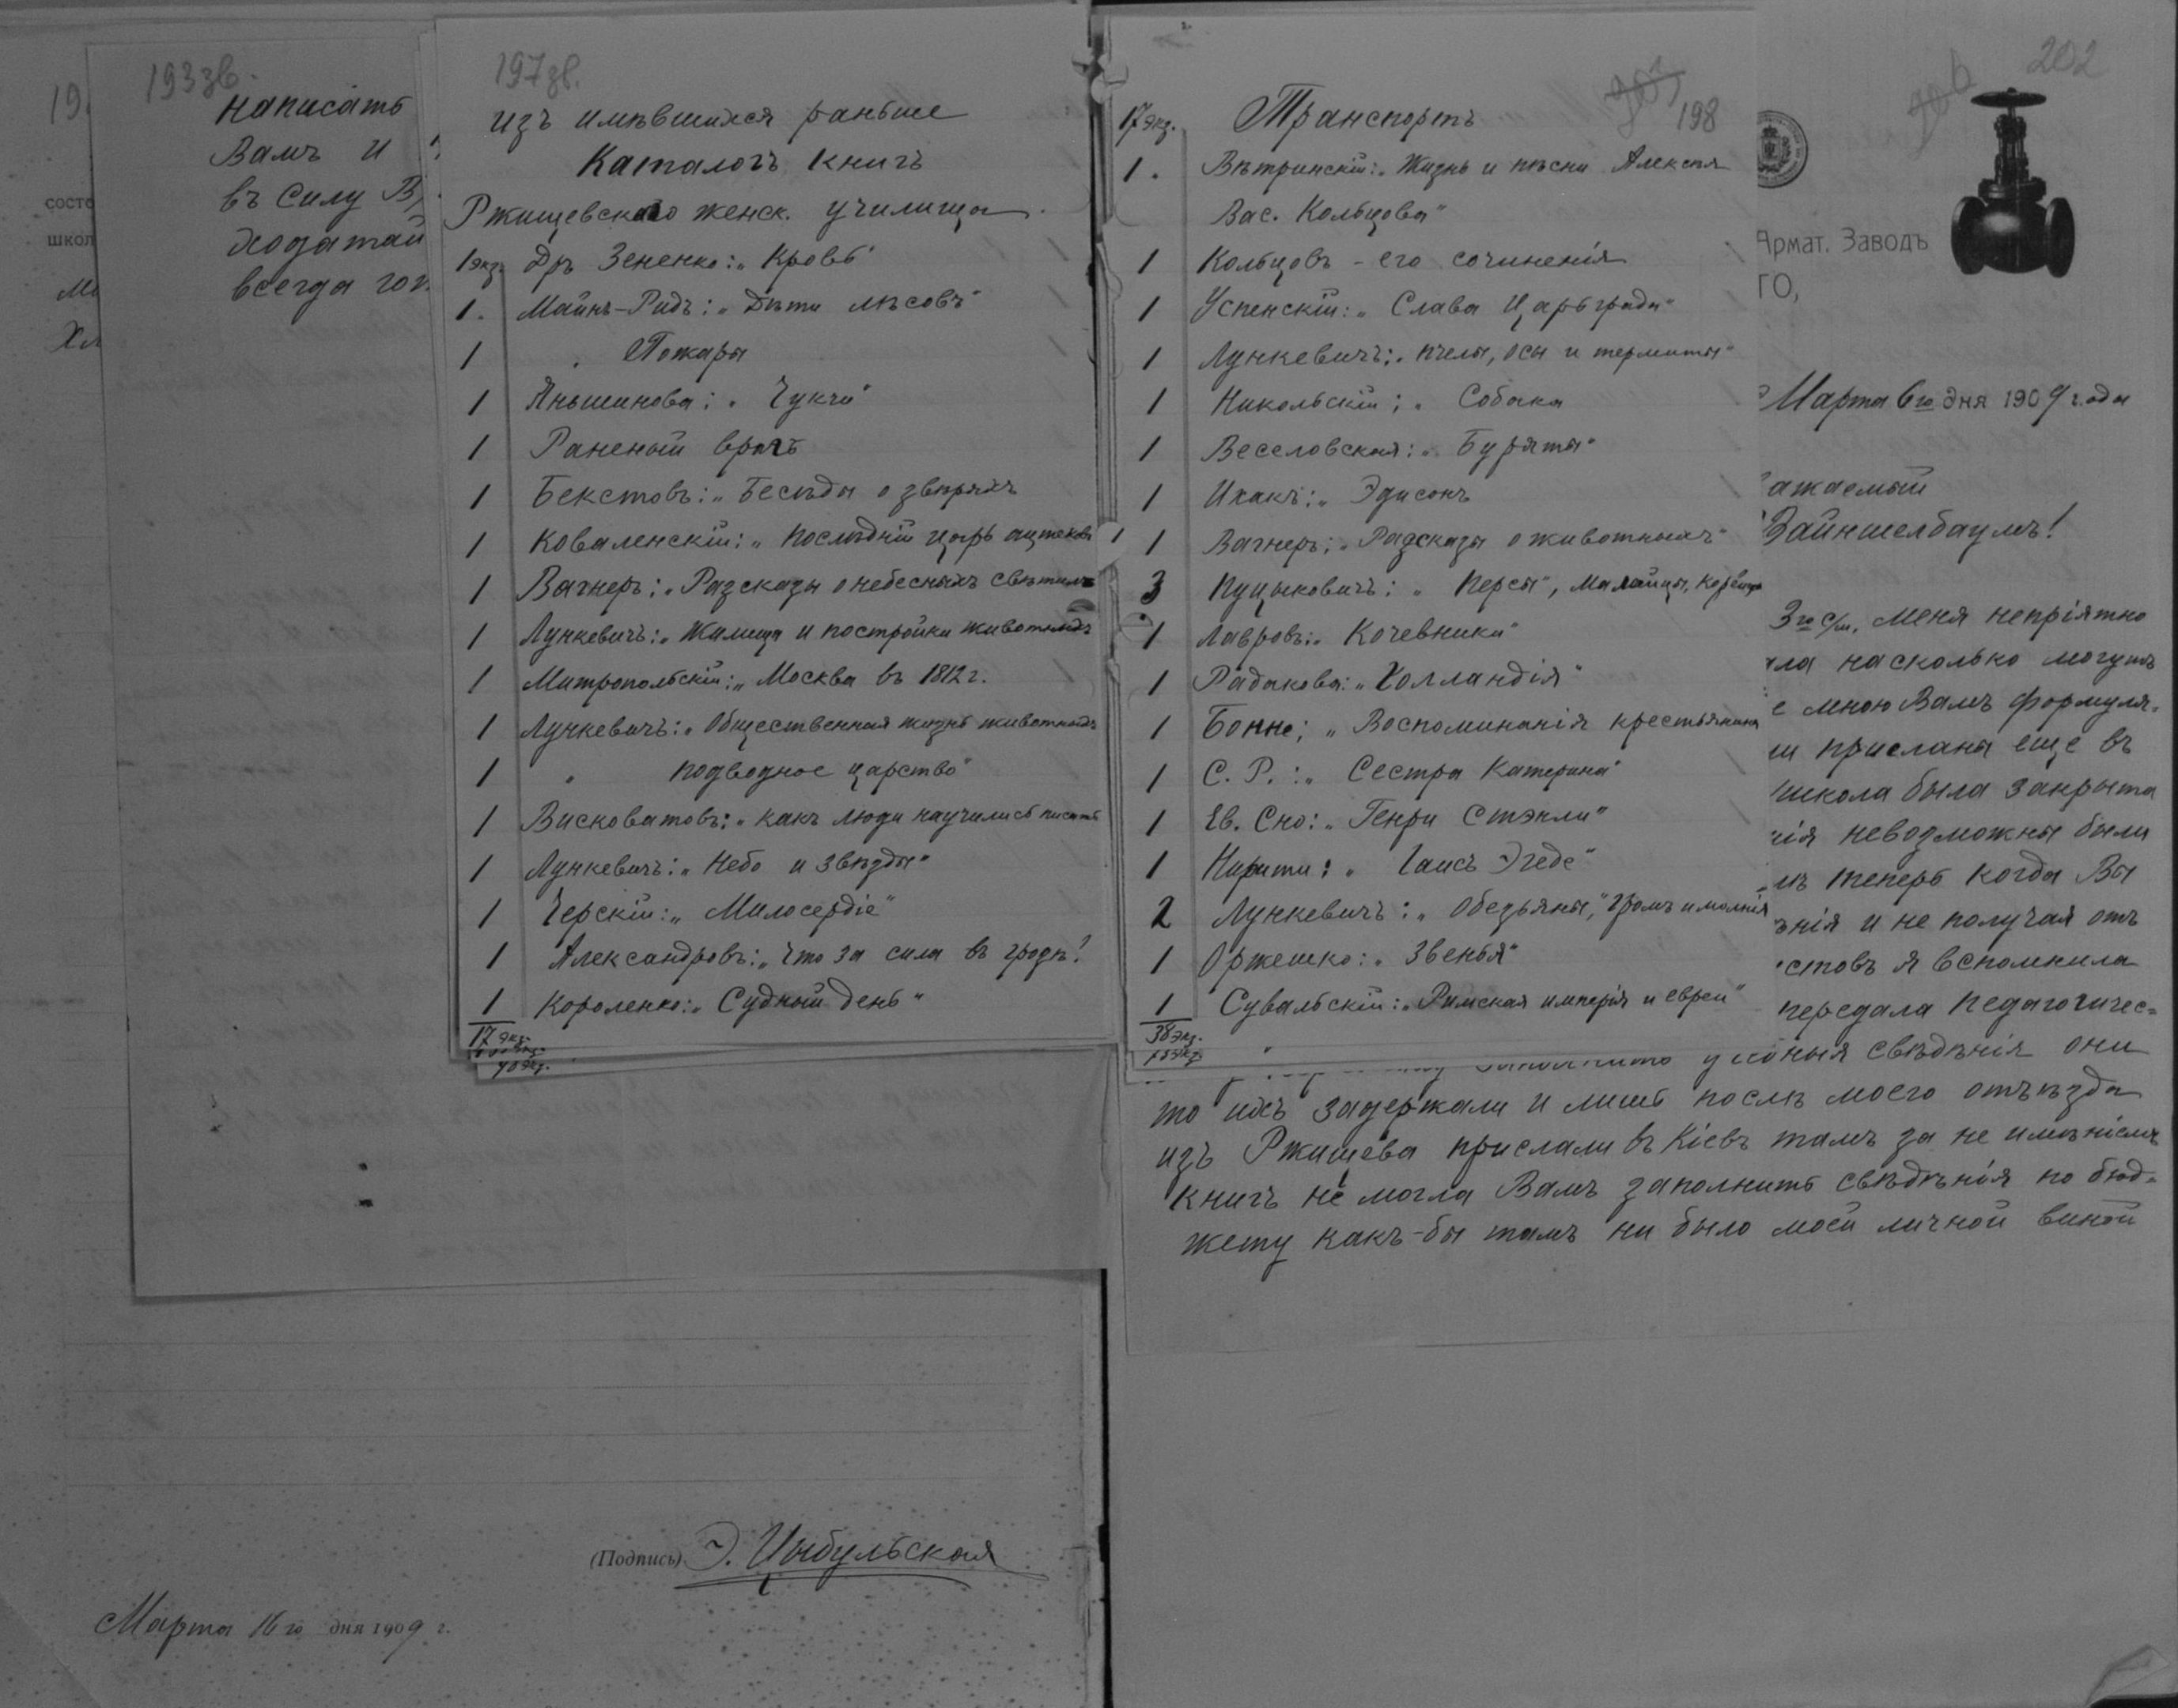 193зв.
написать
Вамъ и
въ силу
ходатай
всегда
состо
школ
197зв.
изъ имѣвшихся раньше
Каталогъ книгъ
Ржищевскаго женск. училища.
1 экз. Дръ Зененко: „Кровь"
1. Майнъ-Ридъ: „Дѣти лѣсовъ"
1 „ Пожары
1 Яньшинова: „Чукчи"
1 Раненый врачъ
1 Бекетовъ: „Бесѣды о звѣряхъ
1 Коваленскій: „Послѣдній царь ацтековъ
1 Вагнеръ: „Разсказы о небесныхъ свѣтилъ
1 Лункевичъ: „Жилища и постройки животныхъ
1 Митропольскій: „Москва въ 1812 г.
1 Лункевичъ: „Общественная жизнь животныхъ
1 „ подводное царство"
1 Висковатовъ: „какъ люди научились писать
1 Лункевичъ: „Небо и звѣзды"
1 Черскій: „Милосердіе"
1 Александровъ: „что за сила въ грозѣ?
1 Короленко: „Судный день"
17 экз.
40 экз.
198
17 экз. Транспортъ
1. Вѣтринскій: „Жизнь и пѣсни Алексѣя
Вас. Кольцова"
1 Кольцовъ - его сочиненія
1 Успенскій: „Слава Царьграда"
1 Лункевичъ: „пчелы, осы и термиты"
1 Никольскій: „Собака
1 Веселовская: „Буряты"
1 „Эдисонъ
1 Вагнеръ: „Разсказы о животныхъ"
3 Пуцыковичъ: „Персы", Малайцы, Корейцы
1 Лавровъ: „Кочевники"
1 Радакова: „Холландія"
1 Бонне: „Воспоминанія крестьянина
1 С. Р.: „Сестра Катерина"
1 Ев. Сно: „Генри Стэнли"
1 „Гансъ Эгеде"
2 Лункевичъ: „Обезьяны", „Громъ и молнія
1 Оржешко: „Звенья"
1 Сувальскій: „Римская имперія и евреи"
38 экз.
202
Армат. Заводъ
ГО,
Марта 6го дня 1909 года
ажаемый
Вайншелбаумъ!
3го с/м. меня непріятно
ла насколько могутъ
е мною Вамъ формуля-
ли прислана еще въ
школа была закрыта
нія невозможны были
мъ теперь когда Вы
ѣнія и не получая отъ
стовъ я вспомнила
передала Педагогичес-
свѣдѣнія они
то ихъ задержали и лишь послѣ моего отъѣзда
изъ Ржищева прислали въ Кіевъ тамъ за не имѣніемъ
книгъ не могла Вамъ заполнить свѣдѣнія по бюд-
жету какъ-бы тамъ ни было моей личной виной
(Подпись) Э. Цыбульская
Марта 16го дня 1909 г.